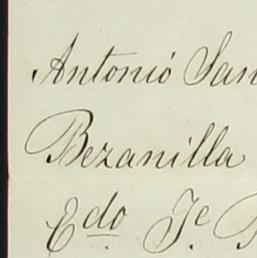 Antonió San
Bezanilla
Edo Je